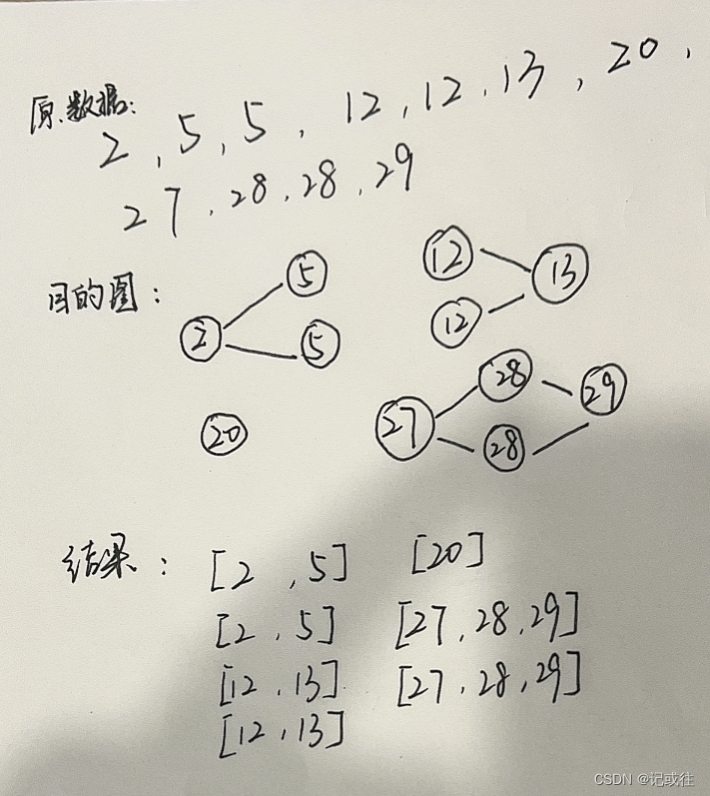 原数据：
2，5，5，12，12，13，20，
27，28，28，29
目的图：
5
12
13
2
12
5
28
29
20
27
28
结果： [2，5] [20]
[2，5] [27，28，29]
[12，13] [27，28，29]
[12，13]
CSDN @记或往